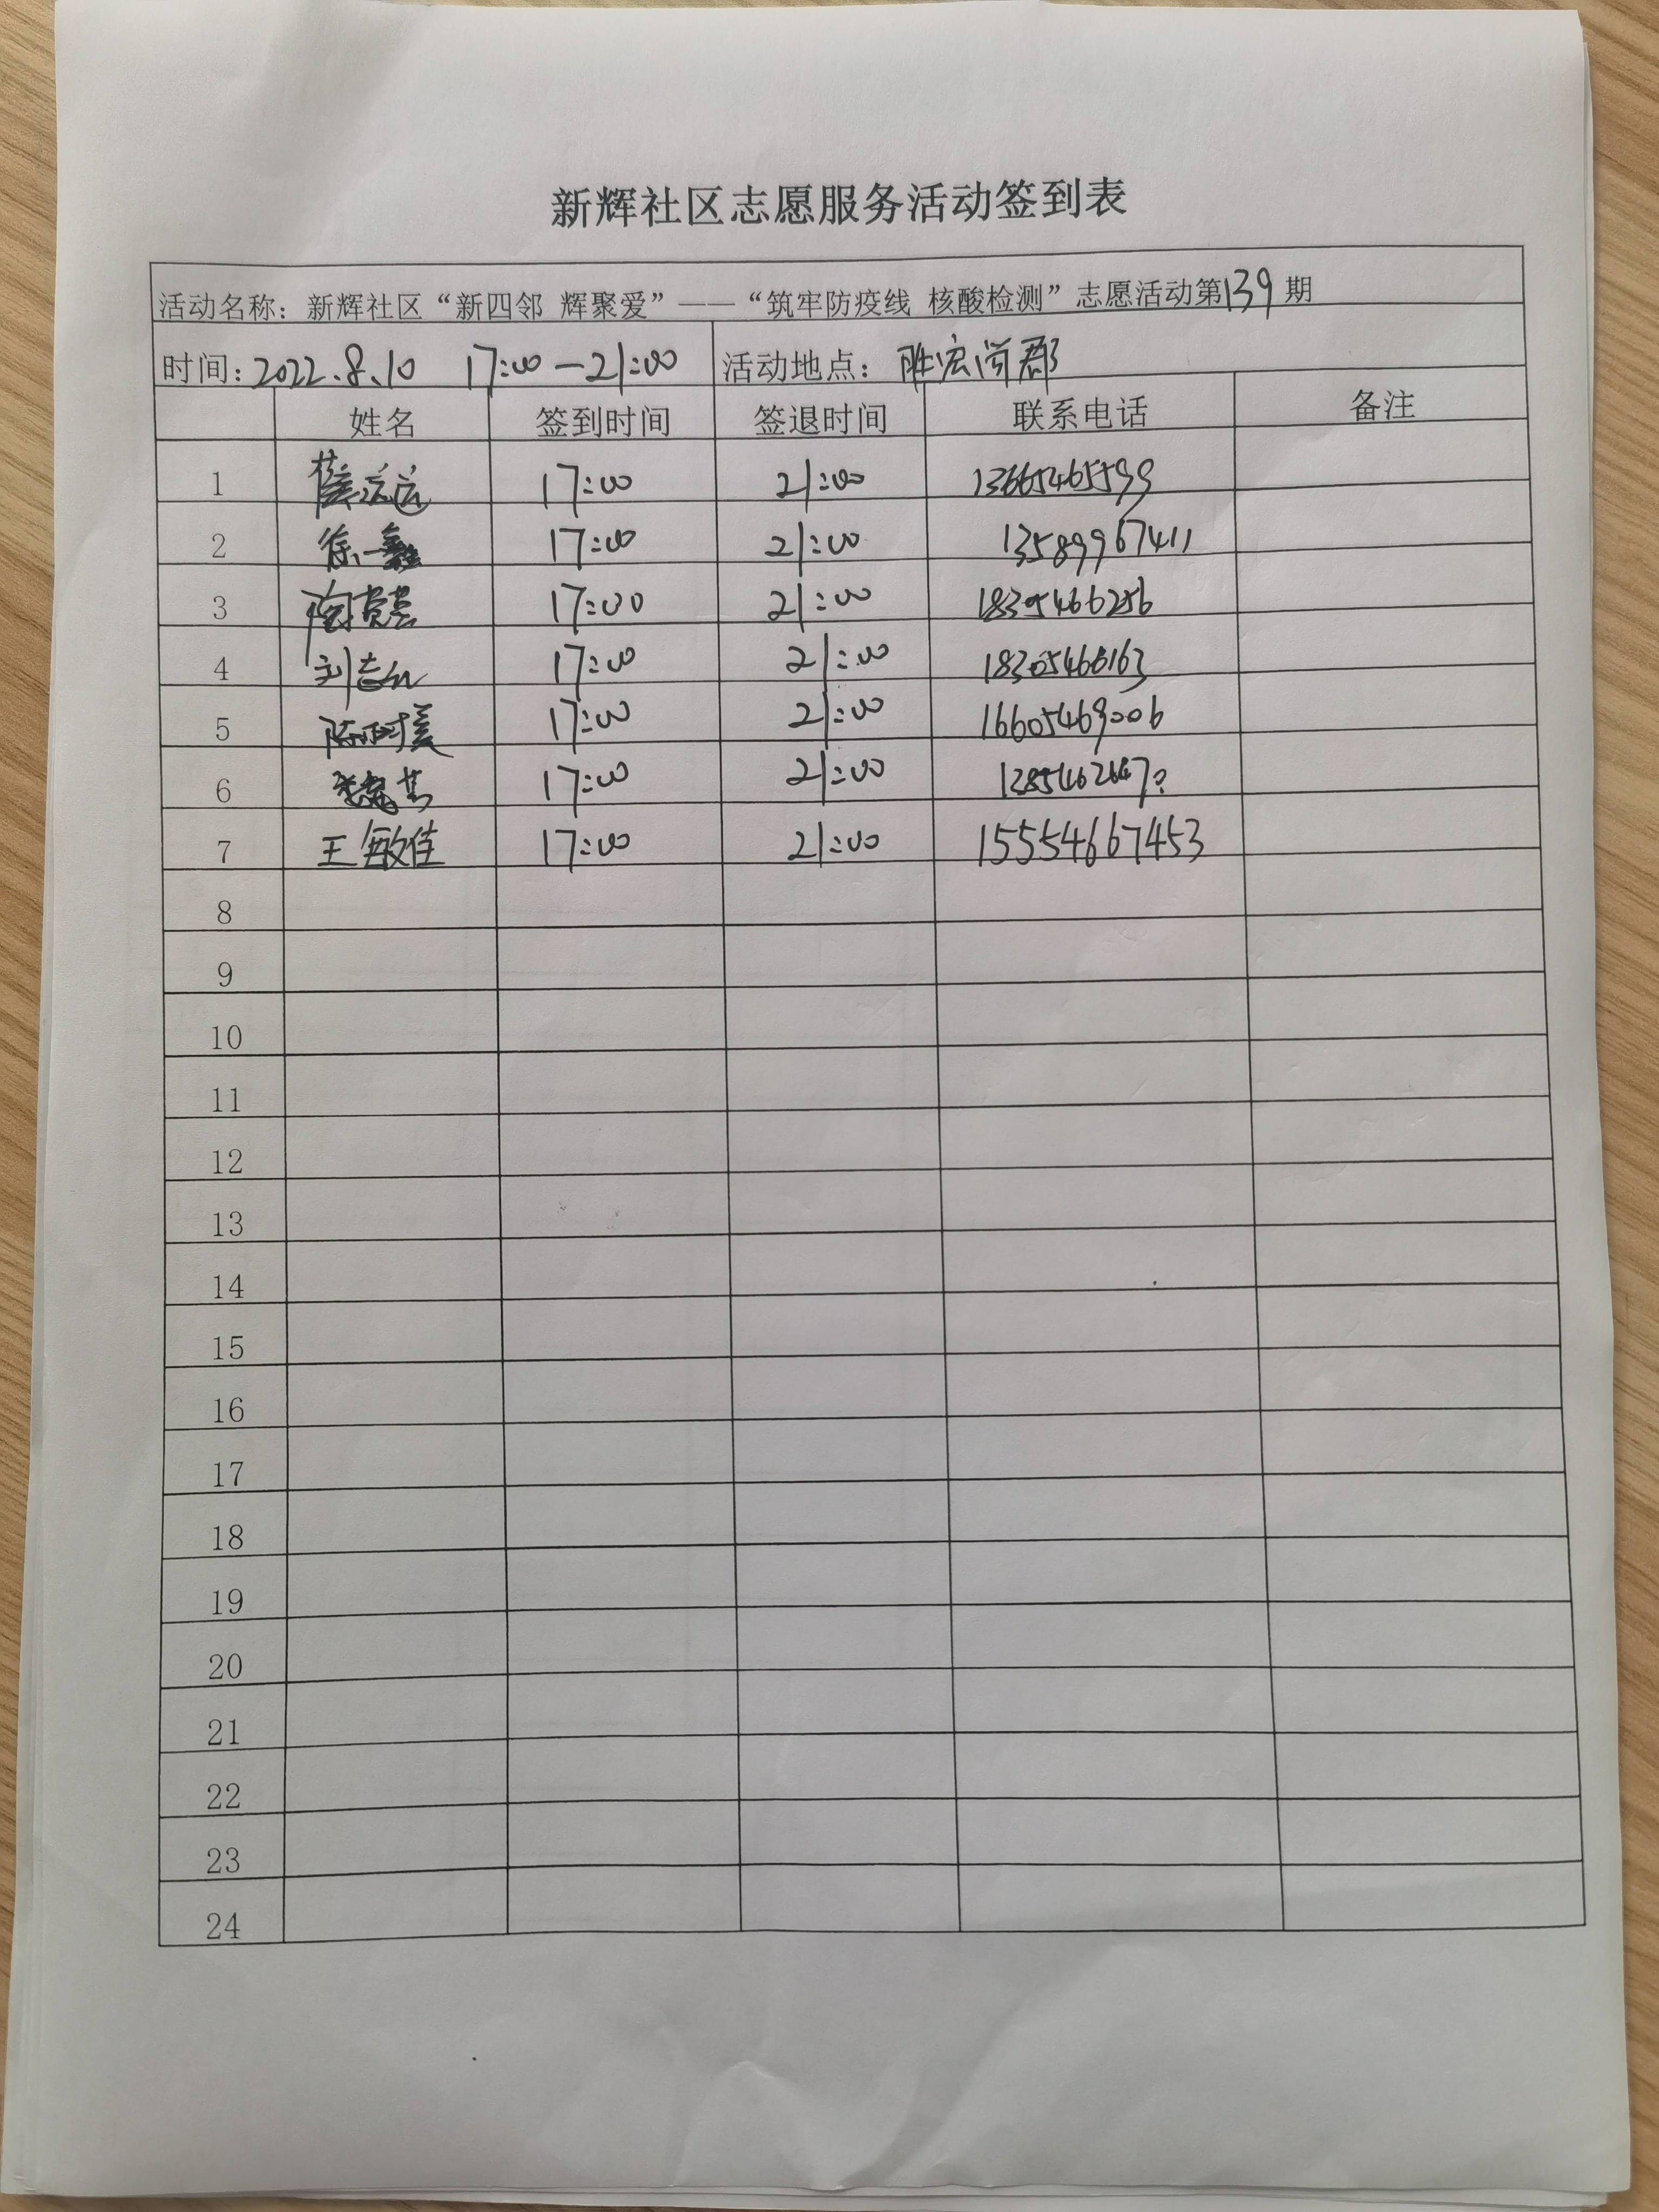 新辉社区志愿服务活动签到表
活动名称：新辉社区“新四邻 辉聚爱”——“筑牢防疫线 核酸检测”志愿活动第139期
时间：2022.8.10 17:00—21:00 活动地点：胜宏尚郡
姓名 签到时间 签退时间 联系电话 备注
1 17:00 21:00 13665465599
2 徐一鑫 17:00 21:00 13589967411
3 17:00 21:00 18305466256
4 17:00 21:00 18305466163
5 17:00 21:00 16605469006
6 17:00 21:00
7 王敏佳 17:00 21:00 15554667453
8
9
10
11
12
13
14
15
16
17
18
19
20
21
22
23
24